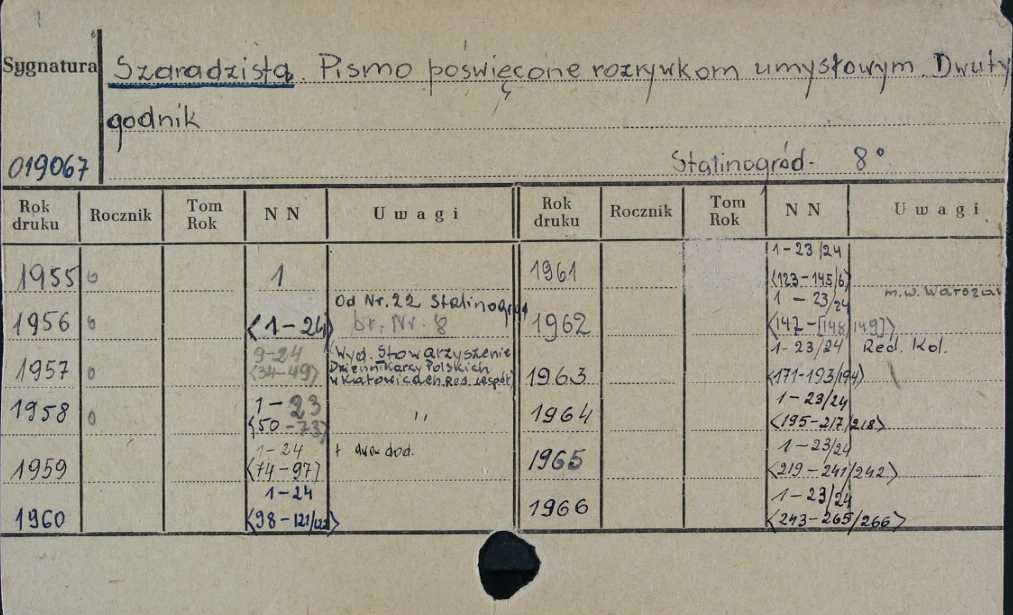 Sygnatura Szaradzista. Pismo poświęcone rozrywkom umysłowym. Dwuty
godnik
019067 Stalinogród. 8°
Rok druku Rocznik Tom Rok N N Uwagi Rok druku Rocznik Tom Rok N N Uwagi
1955 0 1
Od Nr. 22 Stalinogród
1956 0 <1-24> br. Nr. 8
9-24 Wyd. Stowarzyszenie
1957 0 <34-49> Dziennikarzy Polskich
w Katowicach. Red. zespół
1958 0 1-23
<50-73> ,,
1959 1-24 + dod.
<74-97>
1960 1-24
<98-121/122>
1961 1-23/24
<123-145/6>
m.w. Warszaw
1962 1-23/24
<147-[148/149]>
1963 1-23/24 Red. Kol.
<171-193/194>
1964 1-23/24
<195-217/218>
1965 1-23/24
<219-241/242>
1966 1-23/24
<243-265/266>